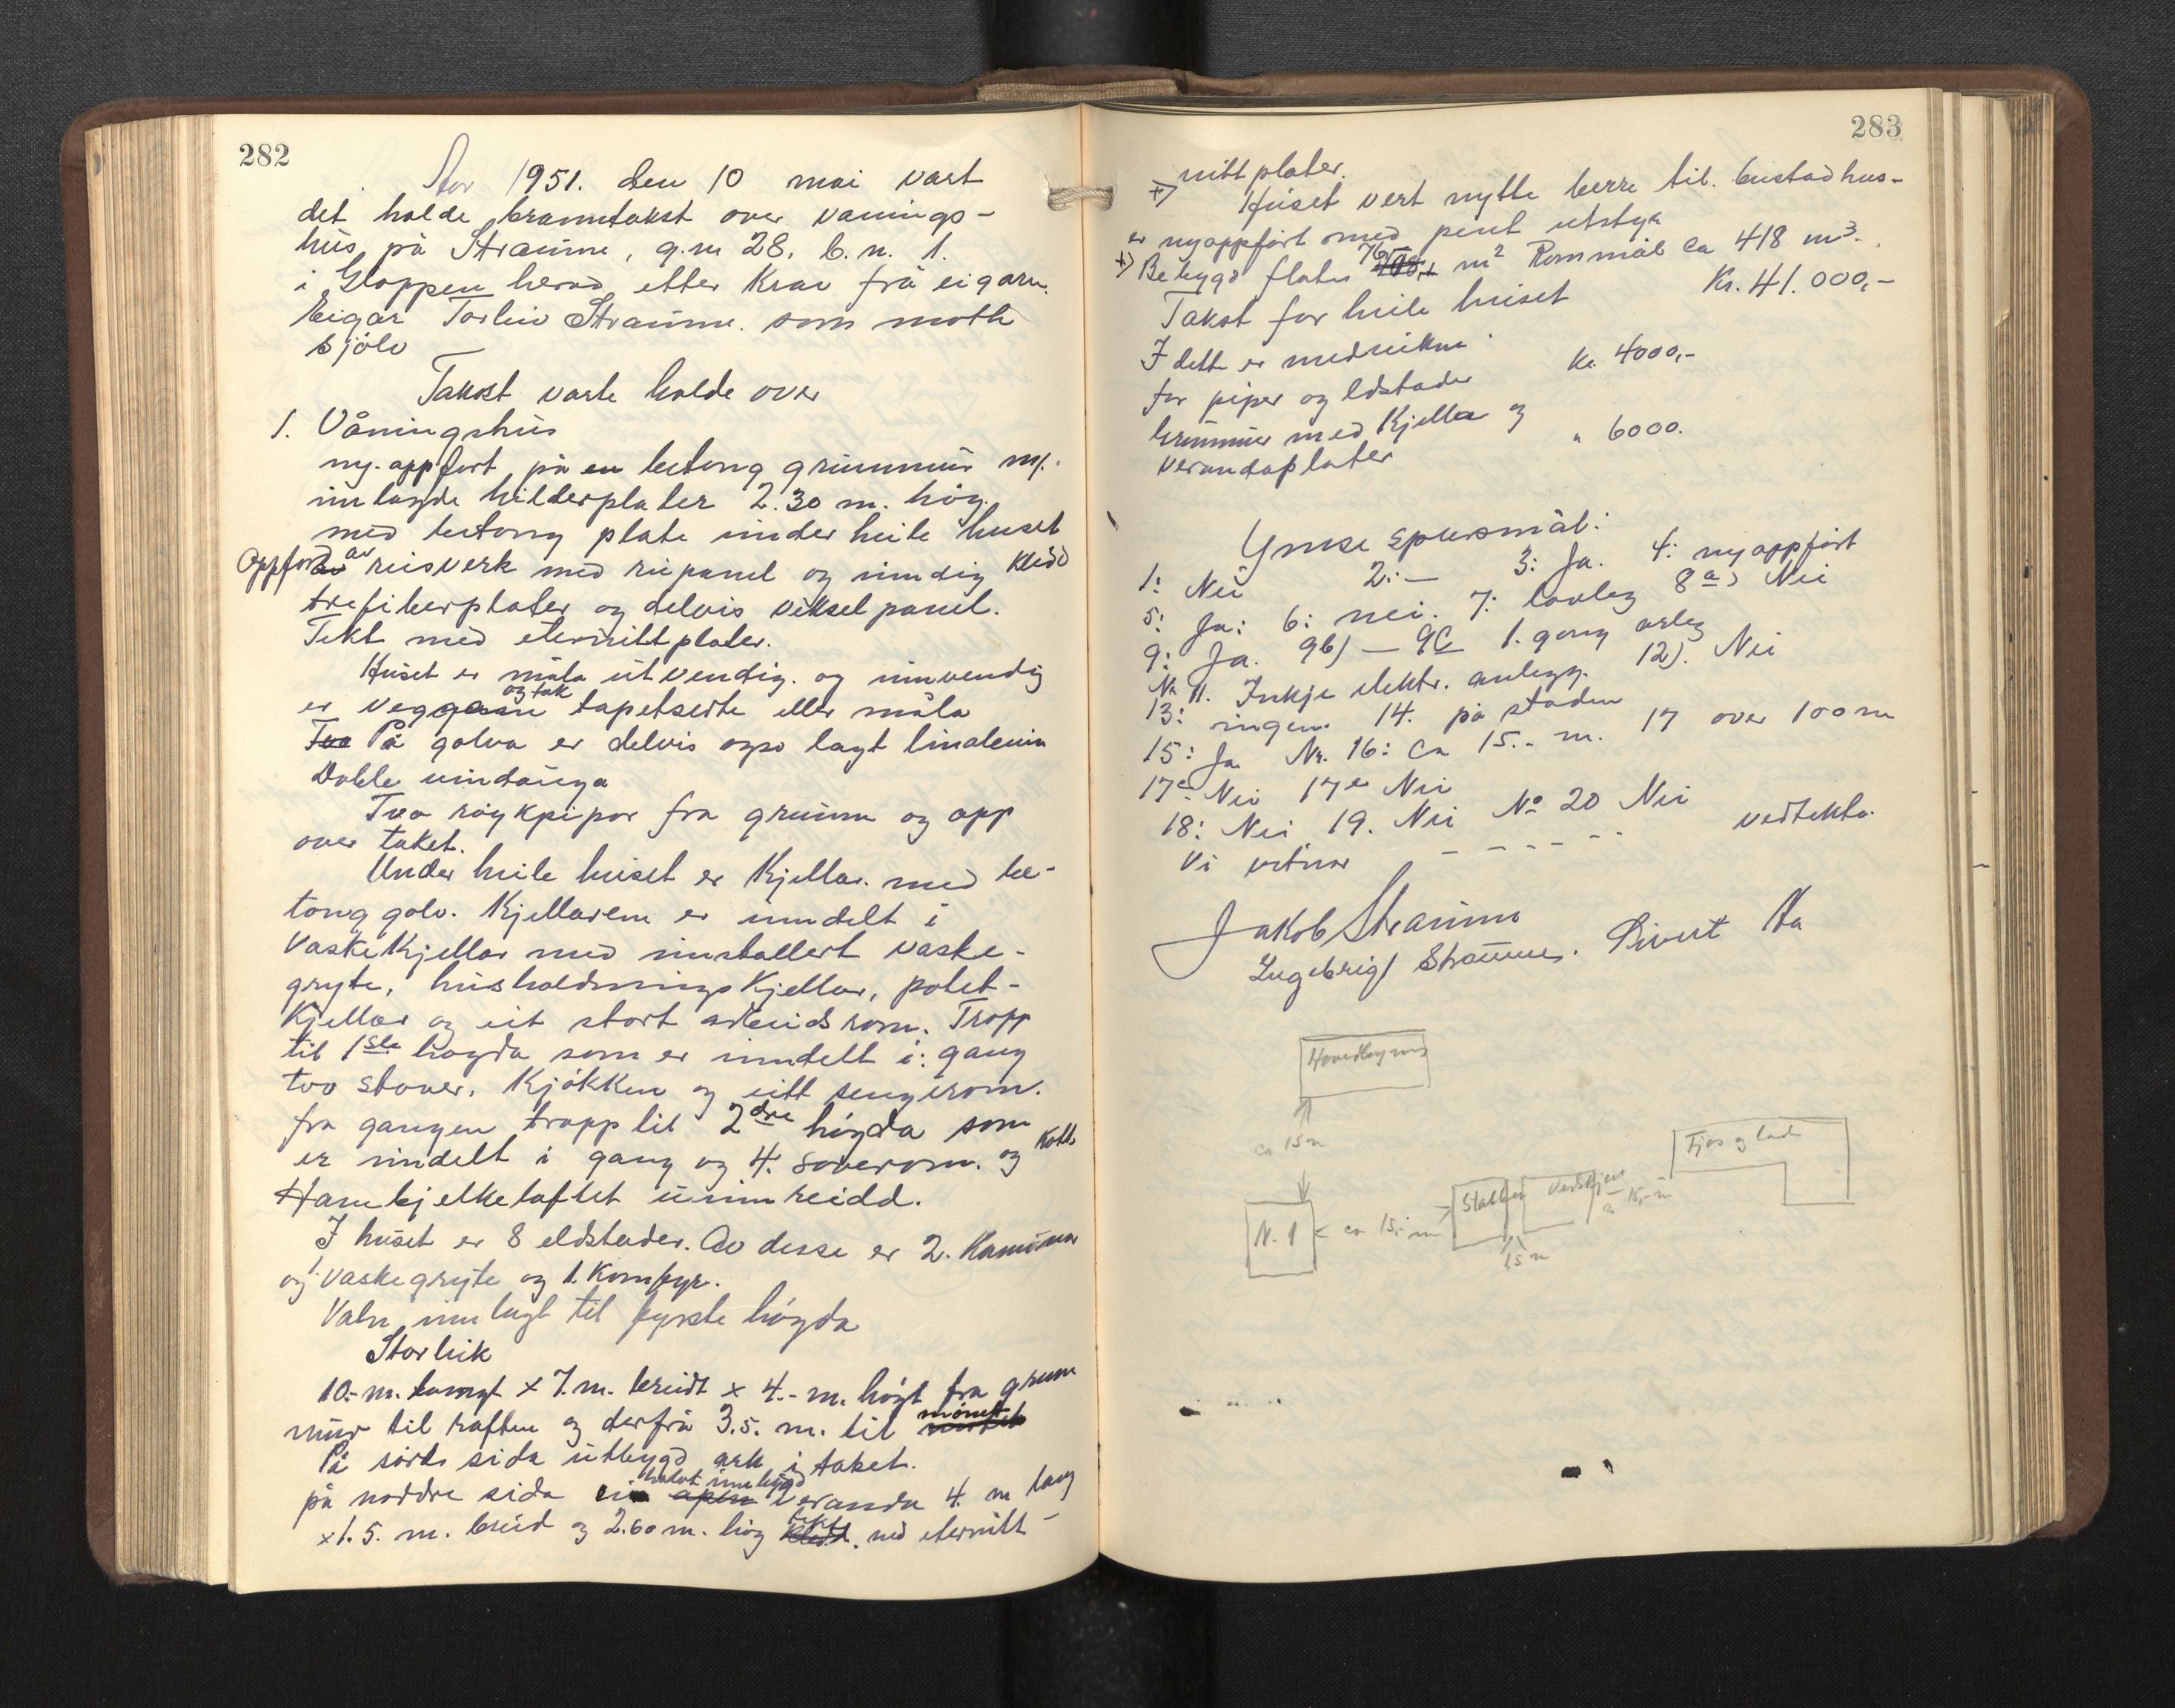 282
År 1951. den 10 mai vart
det halde branntakst over vanings-
hus på Straume, g.n 28. b.n. 1.
i Gloppen herad etter krav frå eigaren.
Eigar Torleiv Straume. som møtte
sjølv
Takst varte halde over
1. Våningshus
ny-oppført på en betong grunnmur m/.
innlagde hilderplater 2.30 m. høg.
med betong plate under heile huset
Oppført av reisverk med rupanel og inndig kledd
trefiberplater og delvis vekselpanel.
Tekt med eternittplater.
Huset er måla utvendig. og innvendig
er veggane og tak tapetserte eller måla
På golva er delvis ogso lagt linoleum
Doble vindauga
Tvo røykpipor fra grunn og opp
over taket.
Under heile huset er kjellar. med be-
tong golv. Kjellaren er inndelt i
vaskekjellar med installert vaske-
gryte, husholdningskjellar, potet-
kjellar og eit stort arbeidsrom. Tropp
til 1ste høgda som er inndelt i: gang
tvo stover, kjøkken og eitt sengerom.
fra gangen trapp til 2dre høgda som
er inndelt i gang og 4. soverom. og kott
Hanebjelkeloftet uinnreidd.
I huset er 8 eldstader. Av desse er 2. kaminar
og 1. vaskegryte og 1. komfyr.
Vatn innlagt til fyrste høgda
Storleik
10.- m. langt x 7. m. breidt x 4.- m. høgt fra grunn
mur til raften og derfrå 3.5. m. til mønet
På sørdre sida utbygd ark i taket.
på nordre sida ei halvt innbygd veranda 4. m lang
x 1.5. m. breid og 2.60 m. høg tekt med eternitt-
283
nittplater.
+) Huset vert nytta berre til bustadhus-
er nyoppført med pent utstyr
+) Bebygd flate 76 m² Rommål ca 418 m³.
Takst for heile huset Kr. 41.000,-
I dette er medrekna
for piper og eldstader Kr. 4000,-
Grunnmur med kjellar og
verandaplater " 6000.
Ymse spursmål:
1: Nei 2: — 3: Ja. 4: nyoppført
5: Ja: 6: nei. 7: lovleg 8a) Nei
9: Ja. 9b) — 9c 1. gong årleg
Nr 11. Inkje elektr. anlegg. 12). Nei
13: ingen. 14. på staden
15: Ja Nr. 16: Ca 15.- m. 17 over 100 m
17c Nei 17e Nei
18: Nei 19. Nei No 20 Nei
Vi vitnar - - - - - - vedtekta.
Jakob Straume
Ingebrigt Straume. Sivert
Hovedbygning
ca 15 m
N. 1
ca 15.- m
Stabbur
Vedskjul
15 m
ca 15,- m
Fjøs og lade